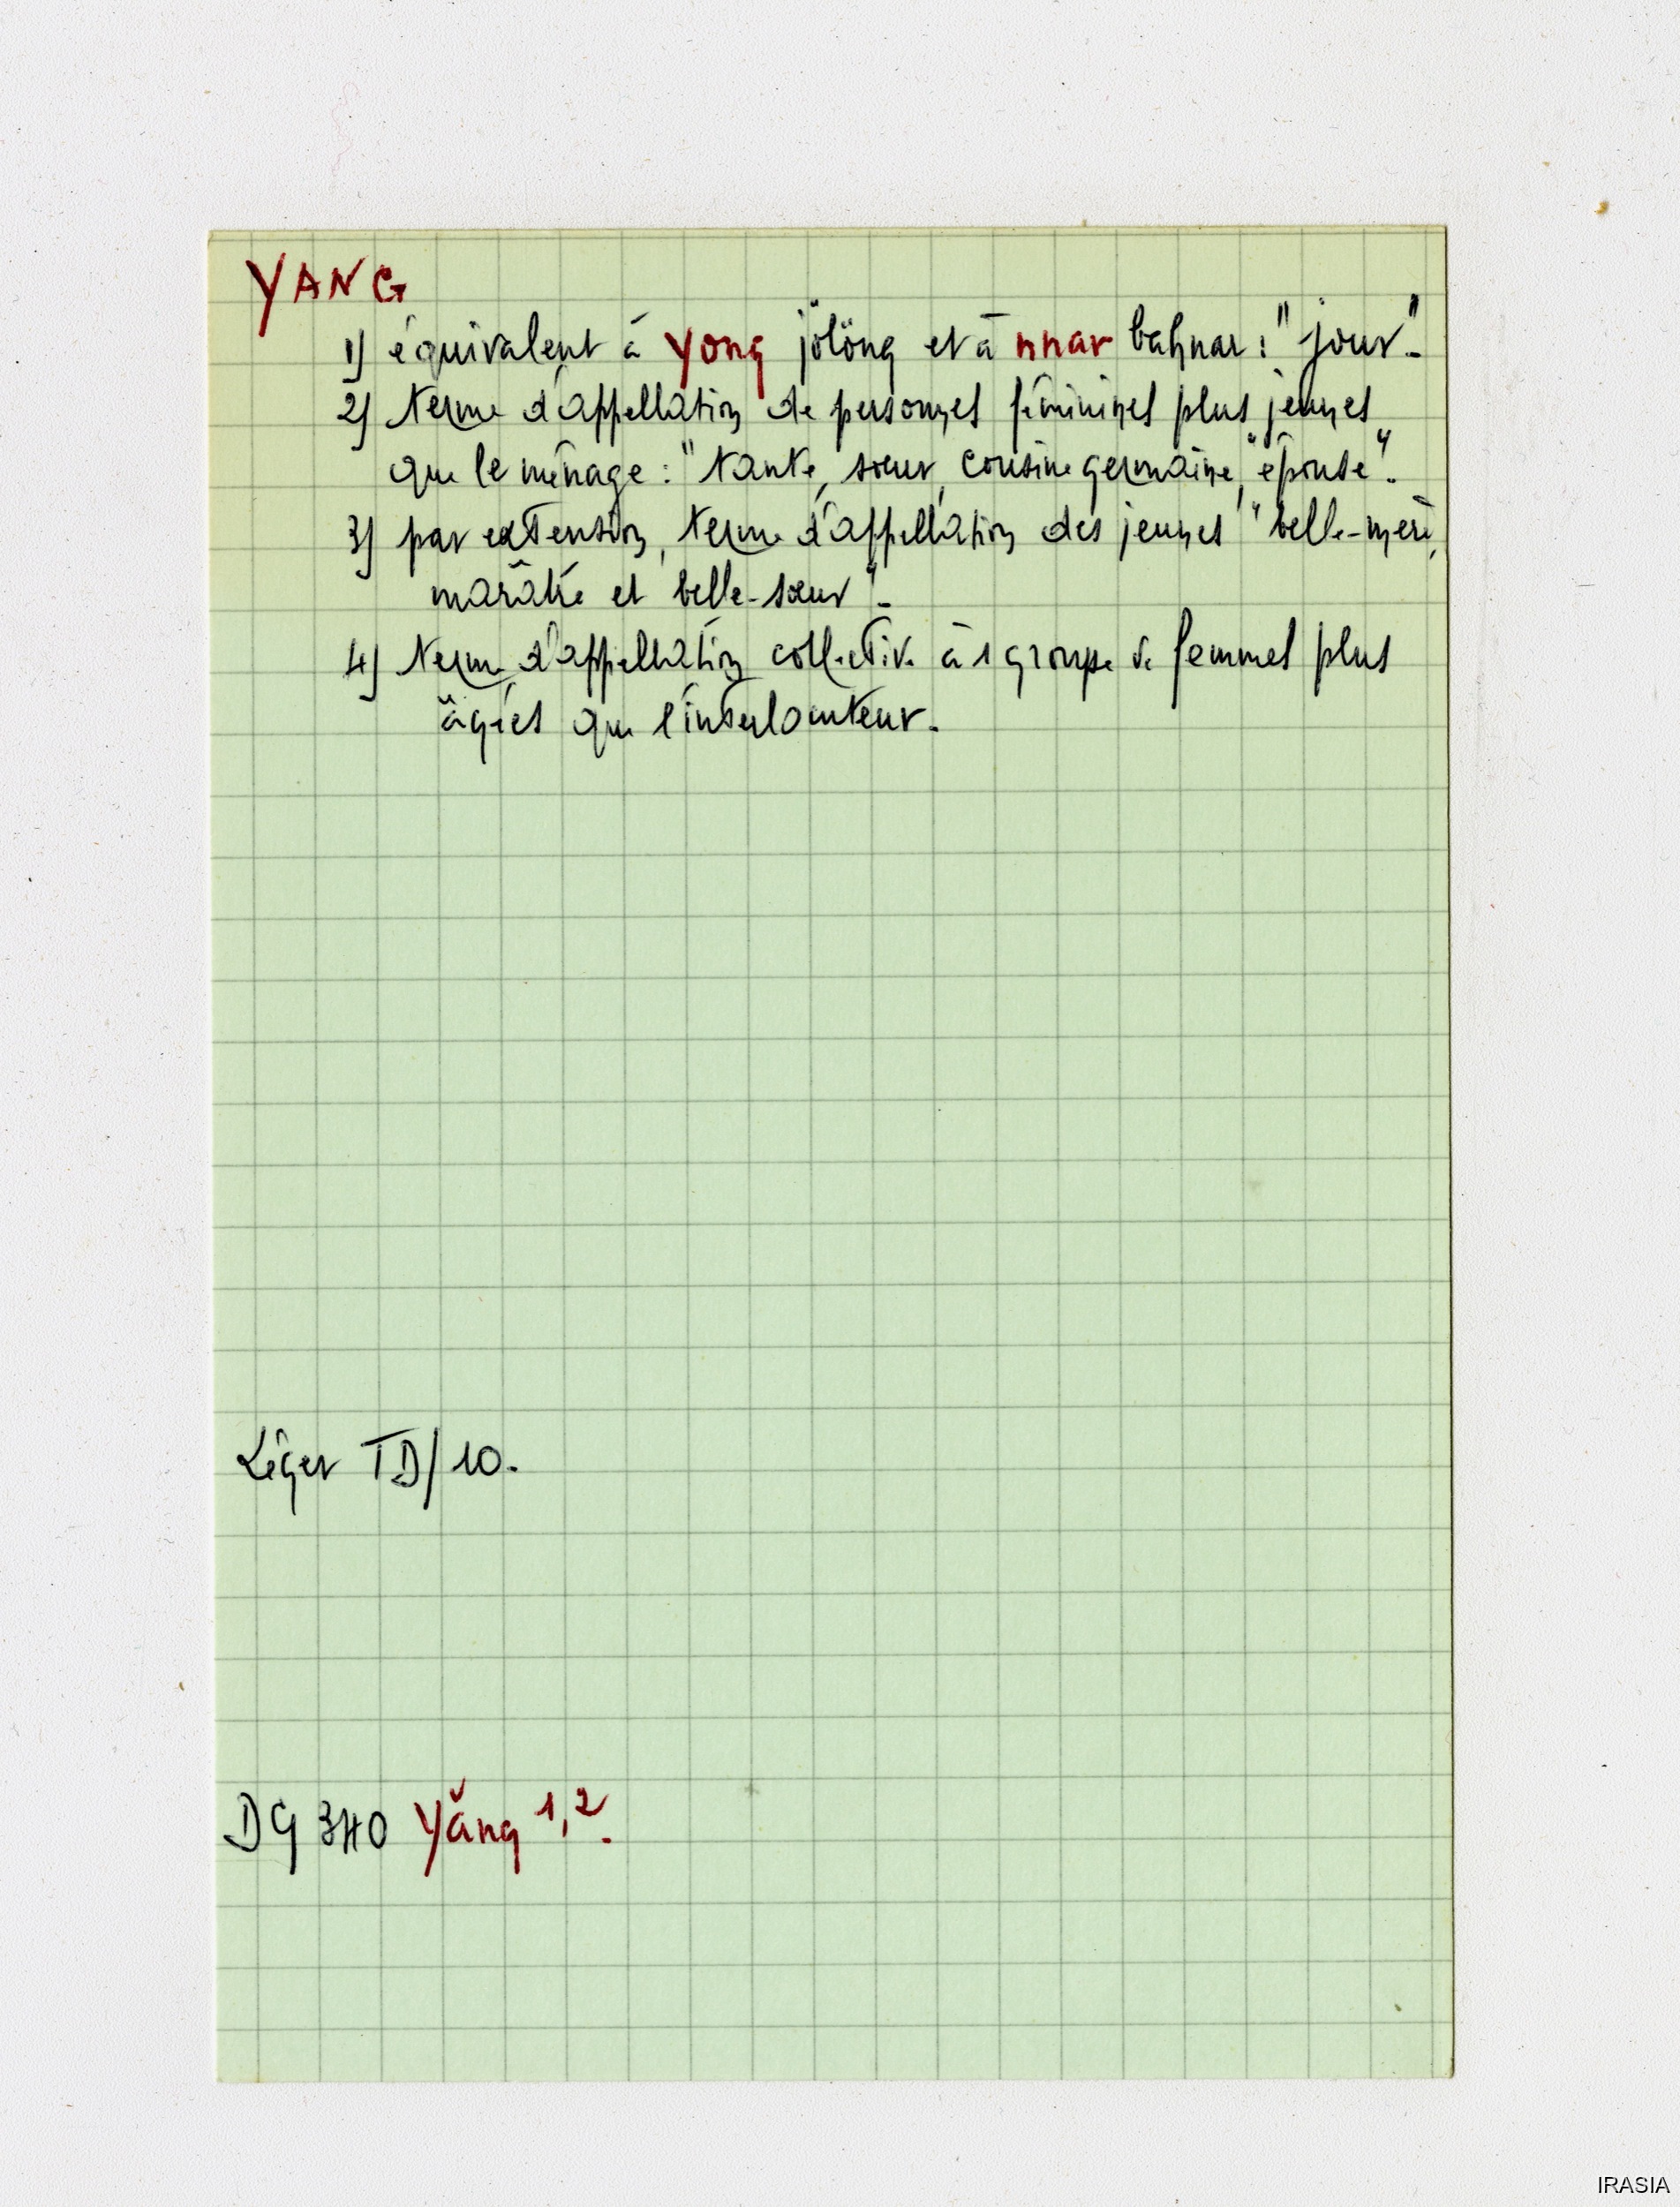 YANG
1) équivalent à yong jölöng et à nnar bahnar : "jour".
2) terme d'appellation de personnes féminines plus jeunes
que le ménage : "tante, sœur, cousine germaine", "épouse".
3) par extension, terme d'appellation des jeunes "belle-mère,
marâtre et belle-sœur".
4) terme d'appellation collective à 1 groupe de femmes plus
âgées que l'interlocuteur.
Léger TD/10.
DG 340 Yăng 1,2.
IRASIA